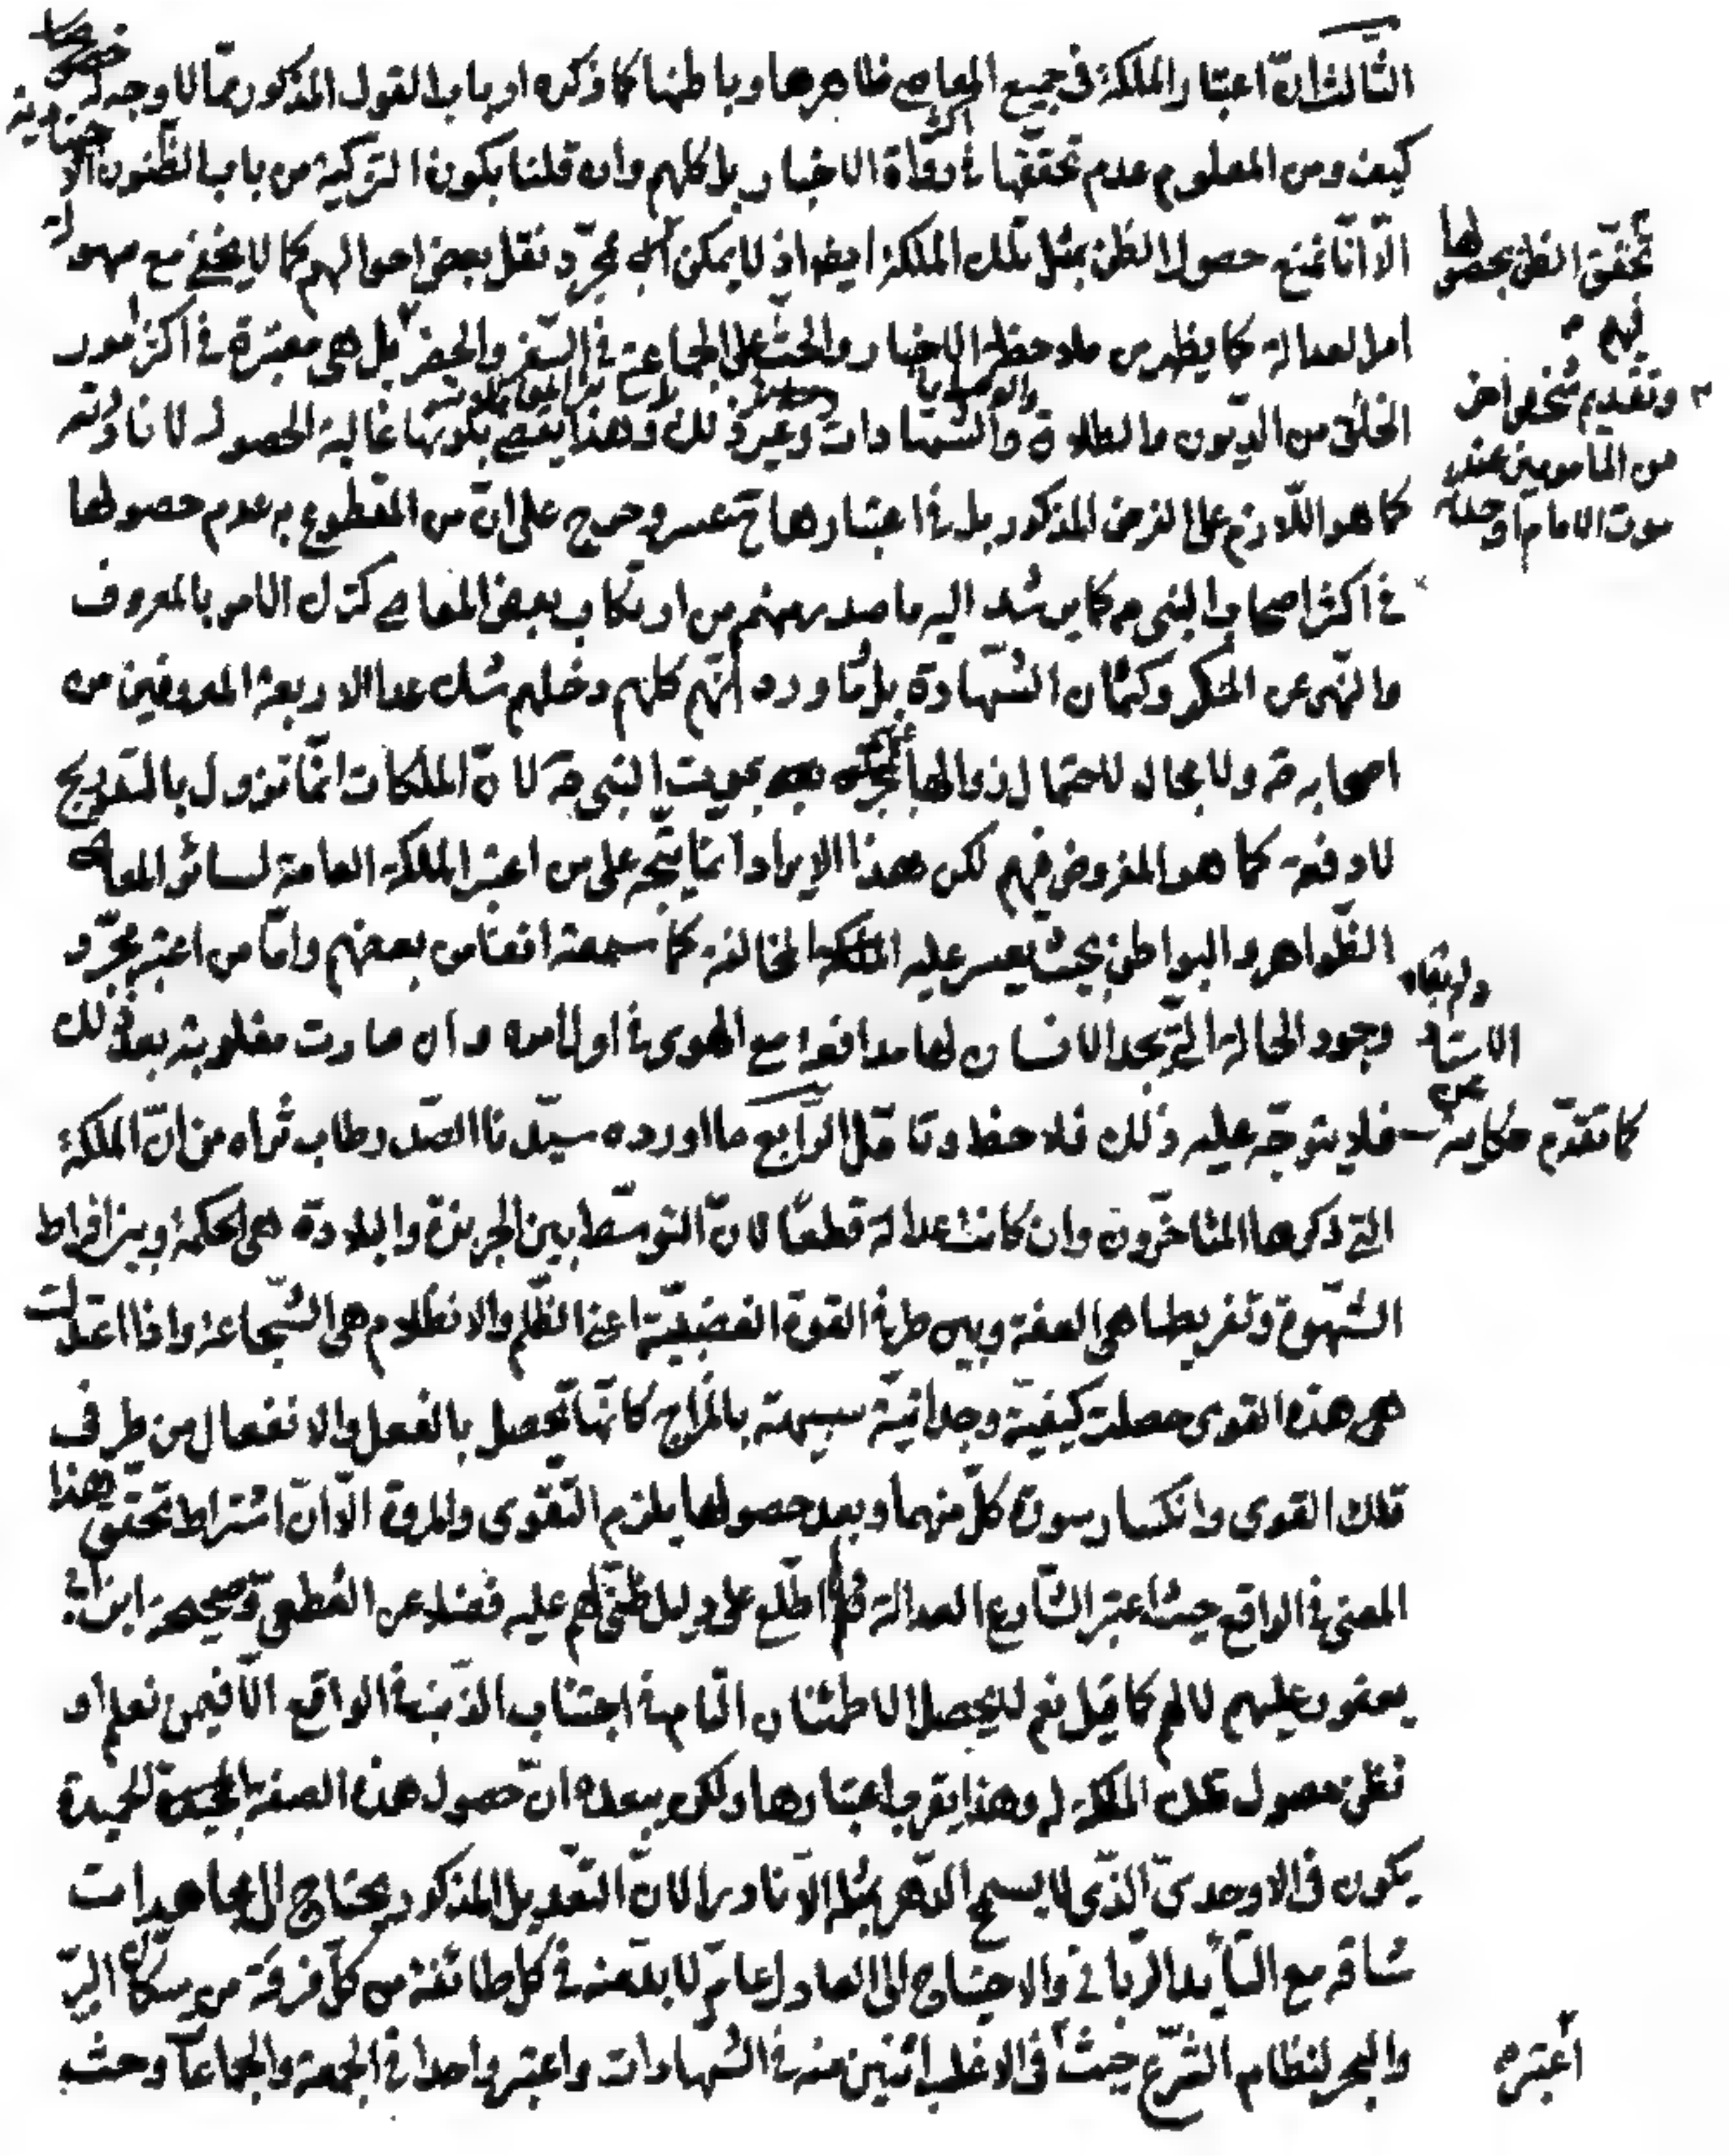 الثالث انّ اعتبار الملكة في جميع المعاصي ظاهرها وباطنها كما ذكره ارباب القول المذكور ممّا لا وجه له
كيف ومن المعلوم عدم تحققها في اكثر رواة الاخبار بل كلهم وان قلنا بكون التزكية من باب الظنون الاجتهادية
الّا انّا نمنع حصول الظن بمثل تلك الملكة ايضا اذ لا يمكن بمجرّد نقل بعض احوالهم كما لا يخفى مع سهولة
تحقق الظن بحصولها
لهم
امر العدالة كما يظهر من ملاحظة الاخبار والحث على الجماعة في السفر والحضر بل هي معتبرة في اكثر امور
وتقديم شخص اخر
من المأمومين عند
موت الامام او
الخلق من الديون والطلاق والشهادات وغير ذلك وهذا يقضي بكونها غالبة الحصول لا نادرته
كما هو اللّازم على الفرض المذكور بل في اعتبارها ح عسر وحرج على انّ من المقطوع به عدم حصولها
في اكثر اصحاب النبي ص كما يرشد اليه ما صدر منهم من ارتكاب بعض المعاصي كترك الامر بالمعروف
والنهي عن المنكر وكتمان الشهادة بل ممّا ورد انّهم كلهم دخلهم شك عدا الاربعة المعروفين من
اصحابه ص ولا مجال لاحتمال زوالها بموت النبي ص لانّ الملكات انّما تزول بالتدريج
لا دفعة كما هو المفروض فيهم لكن هذا الايراد انما يتّجه على من اعتبر الملكة العامة لسائر المعاصي
الظواهر والبواطن بحيث يعسر عليه المخالفة كما سمعته انفا من بعضهم وامّا من اعتبر مجرّد
وجود الحالة التي يجد الانسان لها مدافعة مع الهوى في اول امره وان صارت مغلوبة بعد ذلك
الاستاد
كما تقدّم حكايته عن
فلا يتوجّه عليه ذلك فلاحظ وتامّل الرّابع ما اورده سيّدنا الصّدر طاب ثراه من انّ الملكة
التي ذكرها المتاخّرون وان كانت عدالة قطعًا لانّ التوسّط بين الجربزة والبلادة هي الحكمة وبين افراط
الشهوة وتفريطها هي العفة وبين طرفي القوة الغضبيّة اعني الظّلم والانظلام هي الشّجاعة واذا اعتدلت
هى هذه القوى حصلت كيفيّة وحدانيّة شبيهة بالمزاج كانّها تحصل بالفعل والانفعال من طرف
تلك القوى وانكسار سورة كلّ منهما وبعد حصولها يلزم التّقوى والمروة الّا انّ اشتراط تحقق هذا
المعنى في الواقع حيث اعتبر الشارع العدالة فلم اطّلع على دليل ظنّي لهم عليه فضلا عن القطعي وصحيحة ابن ابي
يعفور عليهم لا لهم كما قيل نعم لا يحصل الاطمئنان التام في اجتناب الذنب في الواقع الّا فيمن نعلم او
نظن حصول تلك الملكة له وهذا يقرب اعتبارها ولكن يبعده انّ حصول هذه الصفة الحميدة
يكون في الاوحدىّ الذّى لا يسمح الدّهر بمثله الّا نادرا لانّ التّعديل المذكور يحتاج الى مجاهدات
شاقة مع التأييد الرّباني والاحتياج الى العادل عامّ لا بدّ منه في كل طائفة من كلّ فرقة من سكان البرّ
والبحر لنظام الشّرع حيث في الاغلب اثنين منه في الشهادات واعتبر واحدا في الجمعة والجماعات وحث
اعتبره